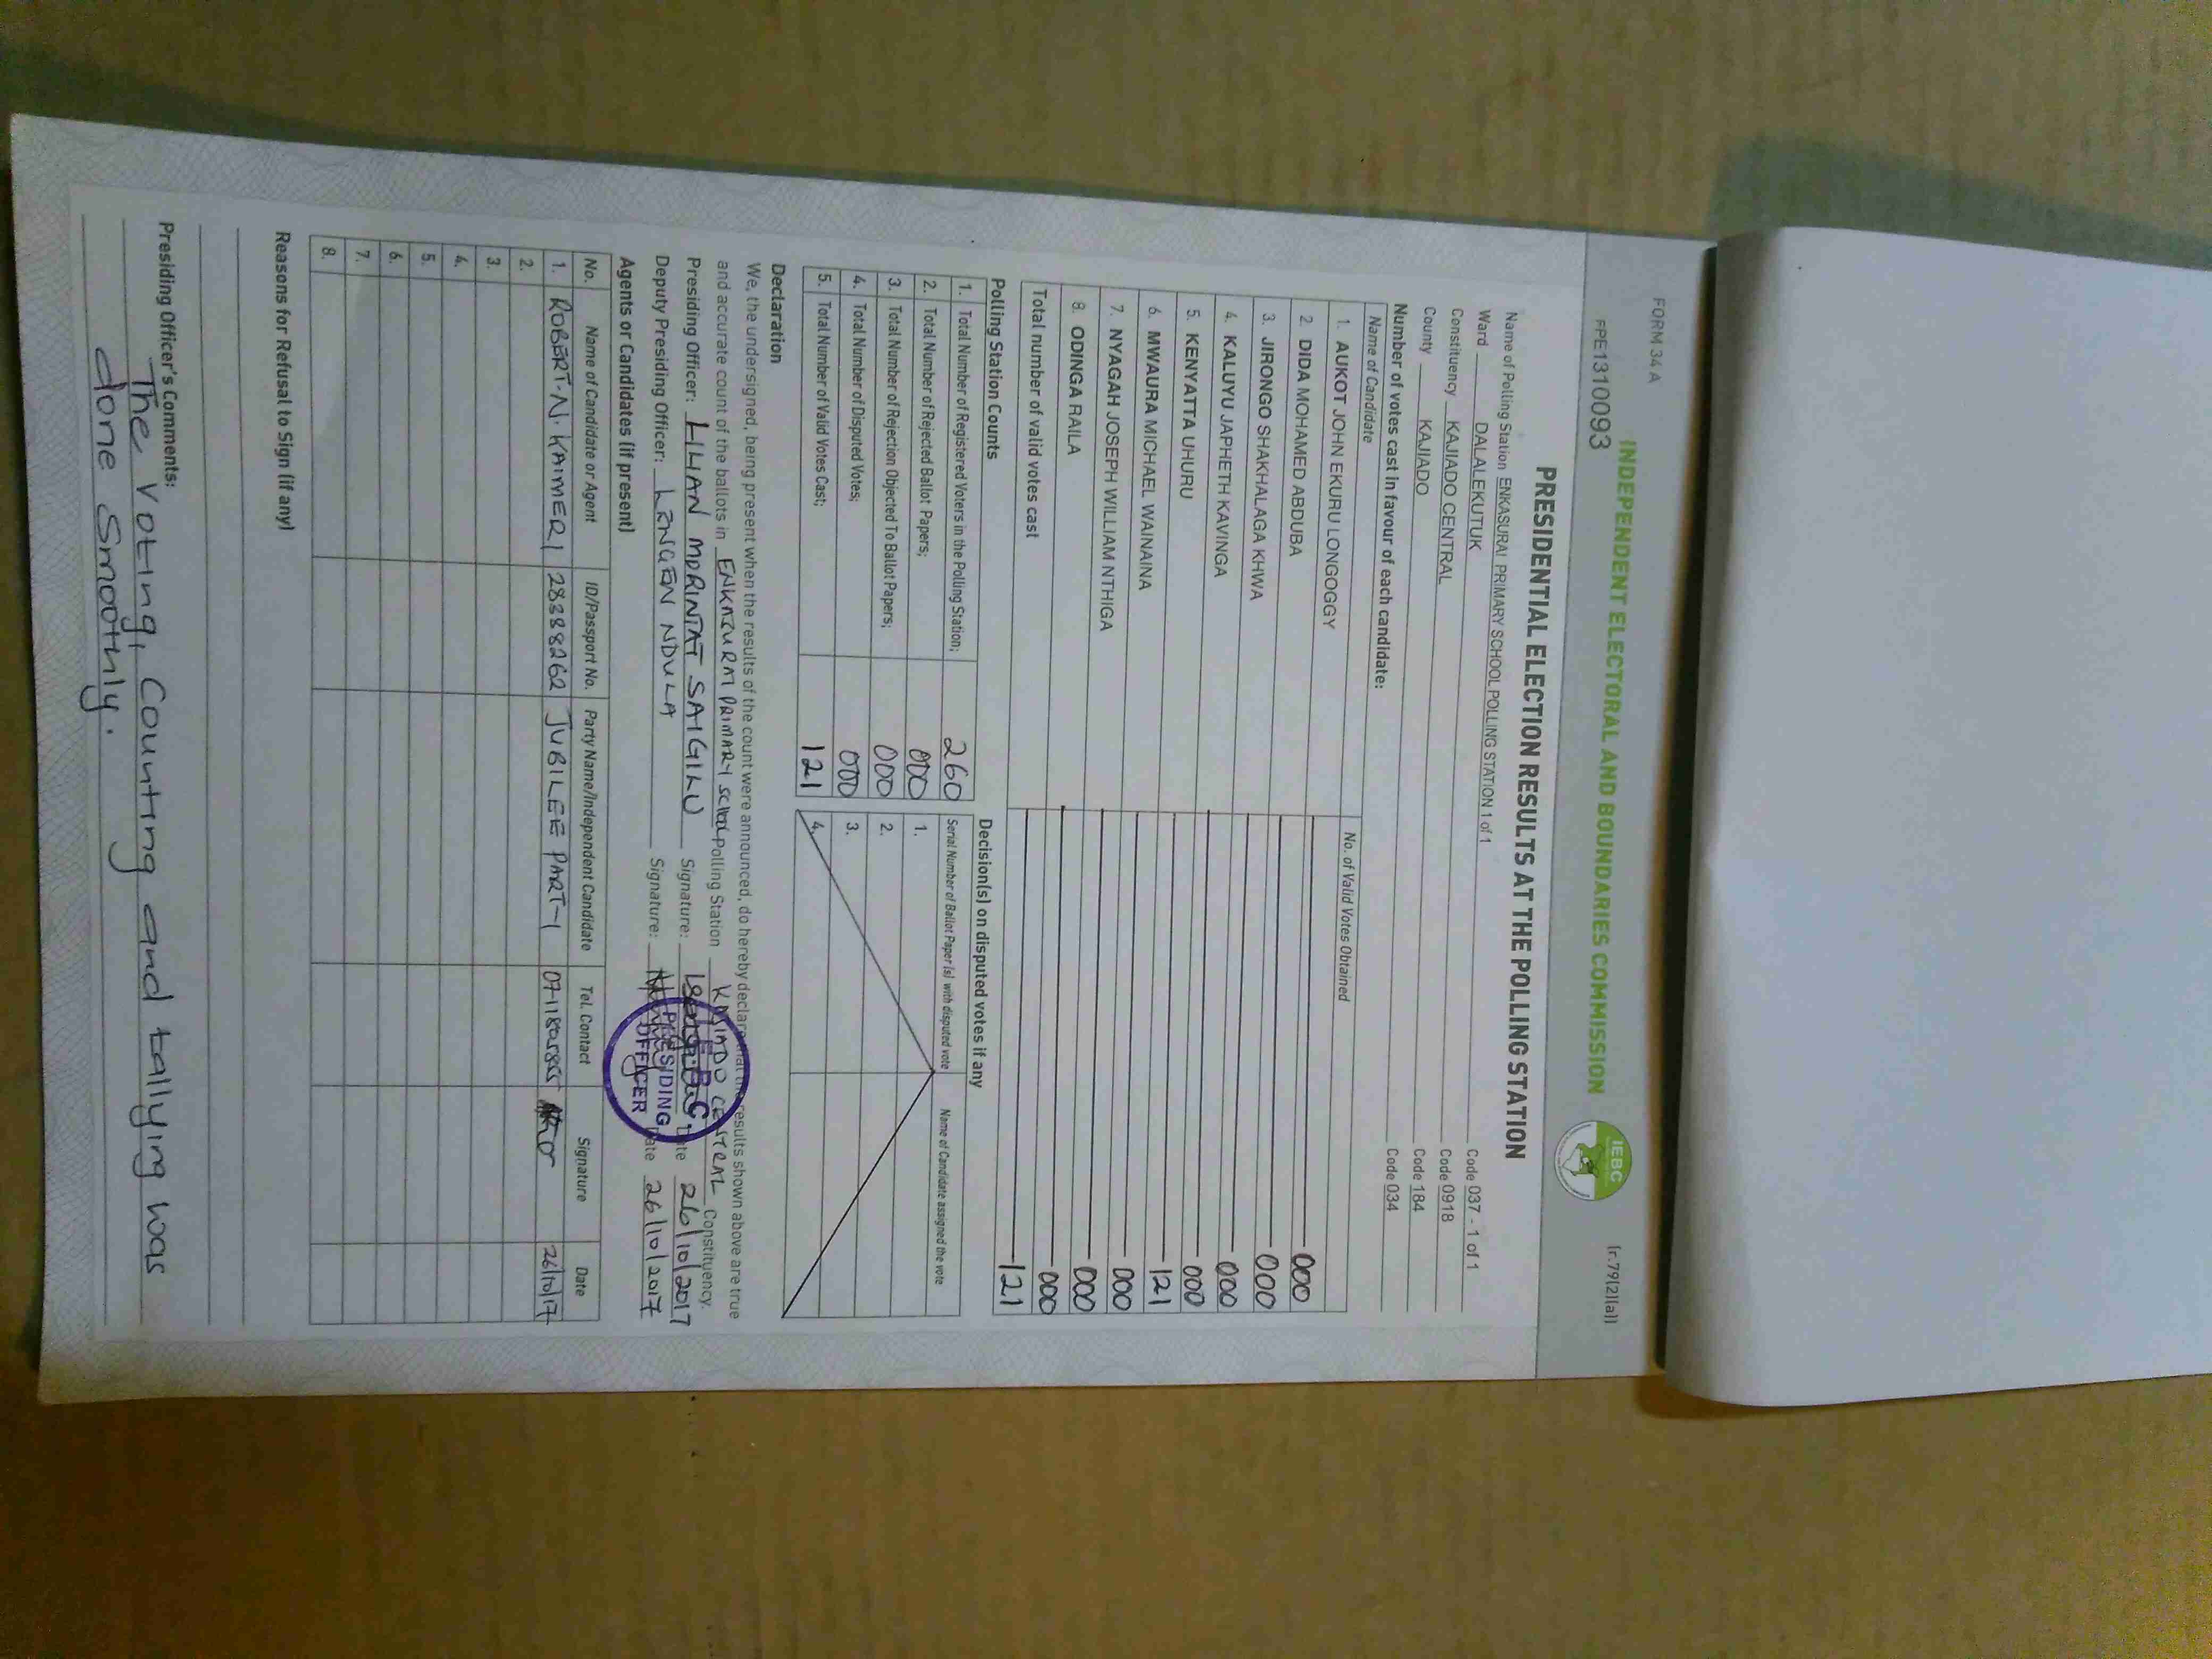 FORM 34 A
(r.79(2)(a))
INDEPENDENT ELECTORAL AND BOUNDARIES COMMISSION
IEBC
PPE1310093
PRESIDENTIAL ELECTION RESULTS AT THE POLLING STATION
Name of Polling Station ENKASURAI PRIMARY SCHOOL POLLING STATION 1 of 1 Code 037 - 1 of 1
Ward DALALEKUTUK Code 0918
Constituency KAJIADO CENTRAL Code 184
County KAJIADO Code 034
Number of votes cast in favour of each candidate:
Name of Candidate No. of Valid Votes Obtained
1. AUKOT JOHN EKURU LONGOGGY 000
2. DIDA MOHAMED ABDUBA 000
3. JIRONGO SHAKHALAGA KHWA 000
4. KALUYU JAPHETH KAVINGA 000
5. KENYATTA UHURU 121
6. MWAURA MICHAEL WAINAINA 000
7. NYAGAH JOSEPH WILLIAM NTHIGA 000
8. ODINGA RAILA 000
Total number of valid votes cast 121
Polling Station Counts
1. Total Number of Registered Voters in the Polling Station; 260
2. Total Number of Rejected Ballot Papers; 000
3. Total Number of Rejection Objected To Ballot Papers; 000
4. Total Number of Disputed Votes; 000
5. Total Number of Valid Votes Cast; 121
Decision(s) on disputed votes if any
Serial Number of Ballot Paper (s) with disputed vote Name of Candidate assigned the vote
1.
2.
3.
4.
Declaration
We, the undersigned, being present when the results of the count were announced, do hereby declare that the results shown above are true
and accurate count of the ballots in ENKASURAI PRIMARY School Polling Station KAJIADO CENTRAL Constituency.
Presiding Officer: LILIAN MORINTAT SAIGILU Signature: Date 26/10/2017
Deputy Presiding Officer: NDULA Signature: Date 26/10/2017
IEBC
PRESIDING
OFFICER
Agents or Candidates (if present)
No. Name of Candidate or Agent ID/Passport No. Party Name/Independent Candidate Tel. Contact Signature Date
1. ROBERT. N. KAIMERI 28388262 JUBILEE PARTY 26/10/17
2.
3.
4.
5.
6.
7.
8.
Reasons for Refusal to Sign (if any)
Presiding Officer's Comments:
The Voting, Counting and tallying was
done smoothly.